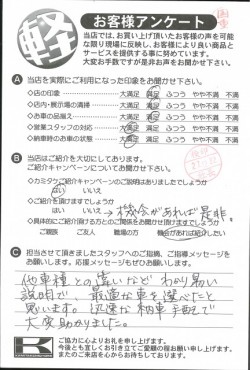 軽
お客様アンケート
当店では、お買い上げ頂いたお客様の声を可能
な限り現場に反映し、お客様により良い商品と
サービスを提供する事に努めています。
大変お手数ですが是非お声をお聞かせ下さい。
A 当店を実際にご利用になった印象をお聞かせ下さい。
◇店の印象 大満足 満足 ふつう やや不満 不満
◇店内・展示場の清掃 大満足 満足 ふつう やや不満 不満
◇お車の品揃え 大満足 満足 ふつう やや不満 不満
◇営業スタッフの対応 大満足 満足 ふつう やや不満 不満
◇納車時のお車の状態 大満足 満足 ふつう やや不満 不満
B 当店はご紹介を大切にしております。
ご紹介キャンペーンについてお聞かせ下さい。
◇カミタケご紹介キャンペーンのご説明はありましたでしょうか
はい いいえ
◇ご紹介を頂けますでしょうか
はい いいえ → 機会があれば是非。
◇具体的にご紹介頂ける方との関係をお聞かせ頂けますでしょうか
ご親族 ご友人 職場の方 機会があれば紹介したい
C 担当させて頂きましたスタッフへのご指摘、ご指導メッセージを
お願いします。応援メッセージもぜひお願いします。
他車種との違いなど わかり易い
説明で、最適な車を選べたと
思います。迅速な納車手配で
大変助かりました。
K
ご協力に心よりお礼を申し上げます。
今後とも宜しくお引き立てご愛顧の程お願い申し上げます。
またのご来店を心からお待ちしております。